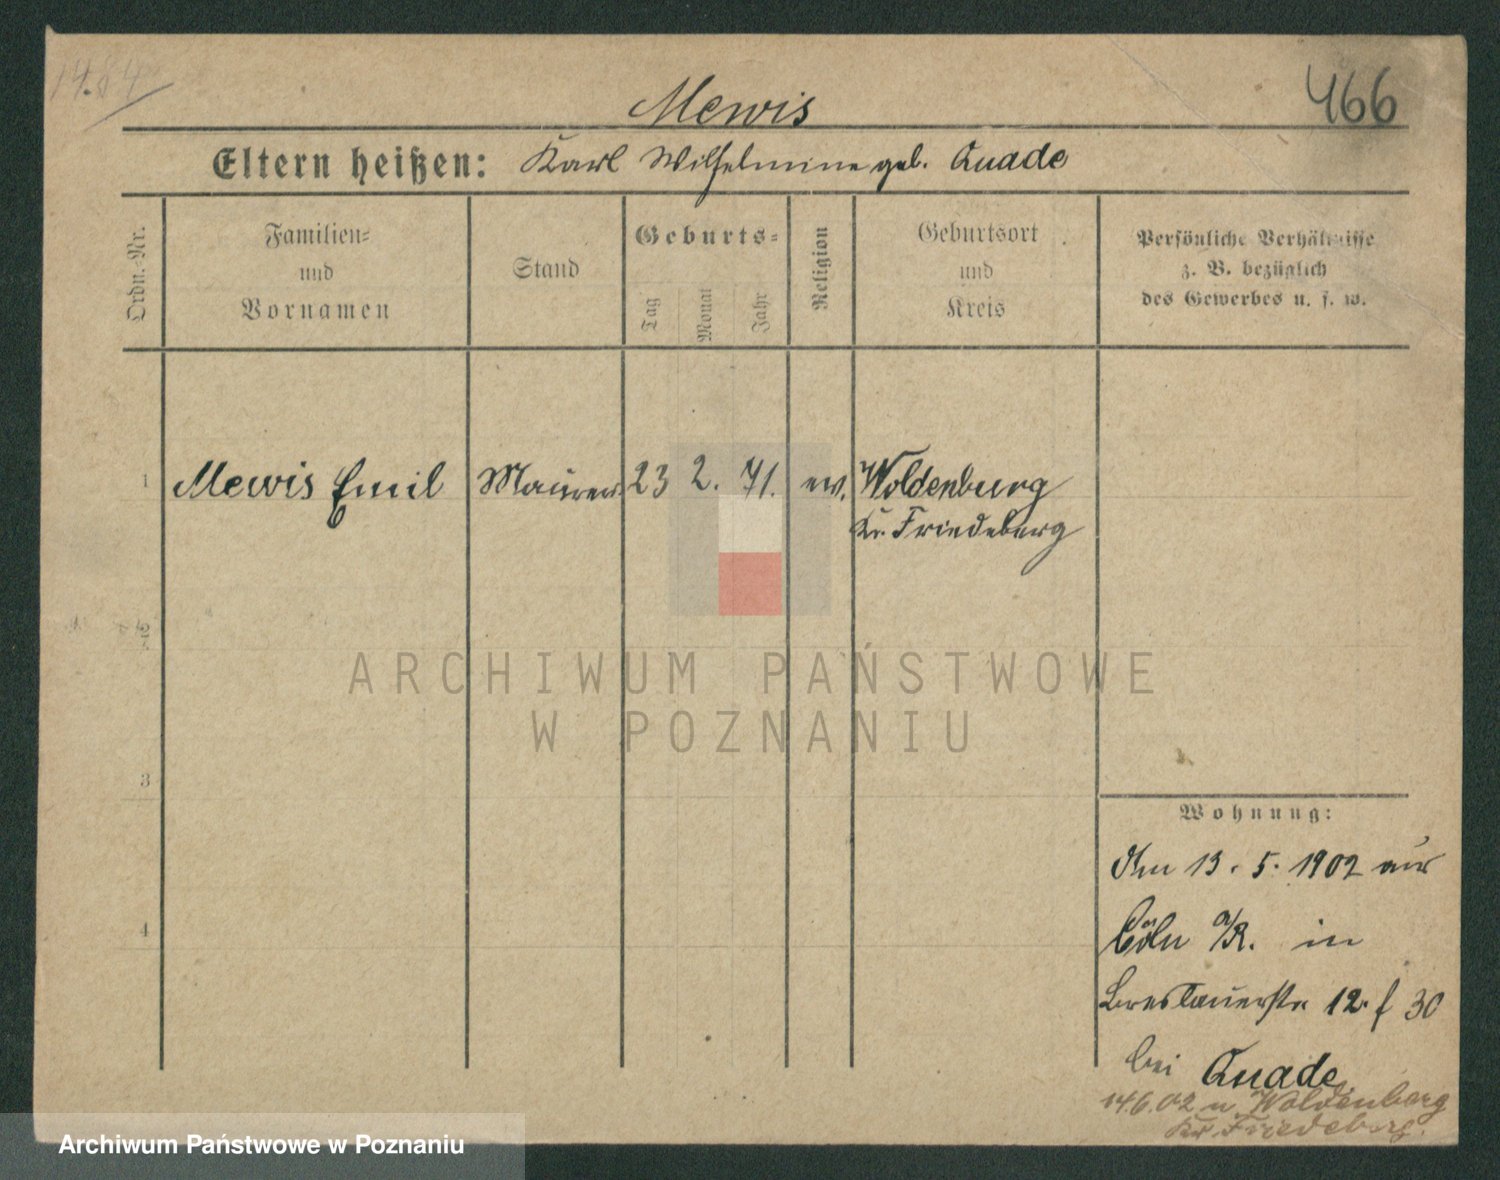 1484
466
Mewis
Eltern heißen: Karl Wilhelmine geb. Quade
Ordn.-Nr.
Familien-
und
Vornamen
Stand
Geburts-
Tag
Monat
Jahr
Religion
Geburtsort
und
Kreis
Persönliche Verhältnisse
z. B. bezüglich
des Gewerbes u. s. w.
1 Mewis Emil Maurer 23 2. 71. ev. Woldenburg
Kr. Friedeberg
2
3
4
Wohnung:
Am 13. 5. 1902 aus
Cöln a/R. in
Breslauerstr. 12. f 30
bei Quade
14.6.02 n Woldenberg
Kr. Friedeberg.
ARCHIWUM PAŃSTWOWE
W POZNANIU
Archiwum Państwowe w Poznaniu